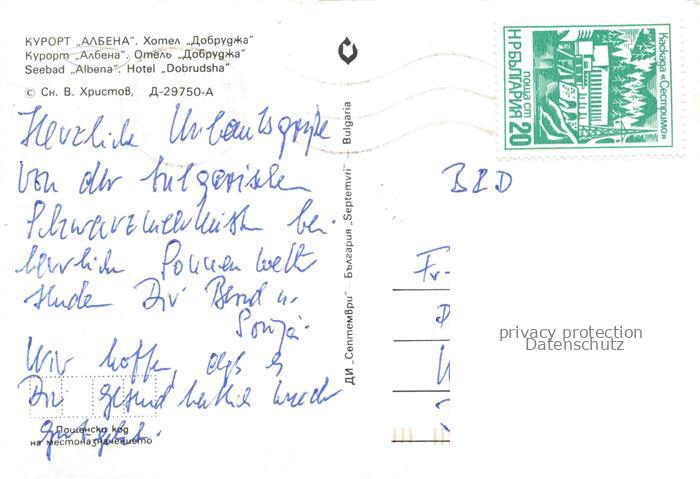 КУРОРТ „АЛБЕНА". Хотел „Добруджа"
Курорт „Албена". Отель „Добруджа"
Seebad „Albena". Hotel „Dobrudsha"
© Сн. В. Христов, Д-29750-А
Herzliche Urlaubsgrüße
von der bulgarischen
Schwarzmeerküste bei
herrlichem Sonnenwetter
senden Dir Bernd u.
Sonja.
Wir hoffen, daß es
Dir gesundheitlich wieder
gut geht.
Пощенски код
на местоназначението
ДИ „Септември" — България „Septemvri" — Bulgaria
Каскада «Сестримо»
поща ст
НРБЪЛГАРИЯ 20
BRD
Fr-
privacy protection
Datenschutz